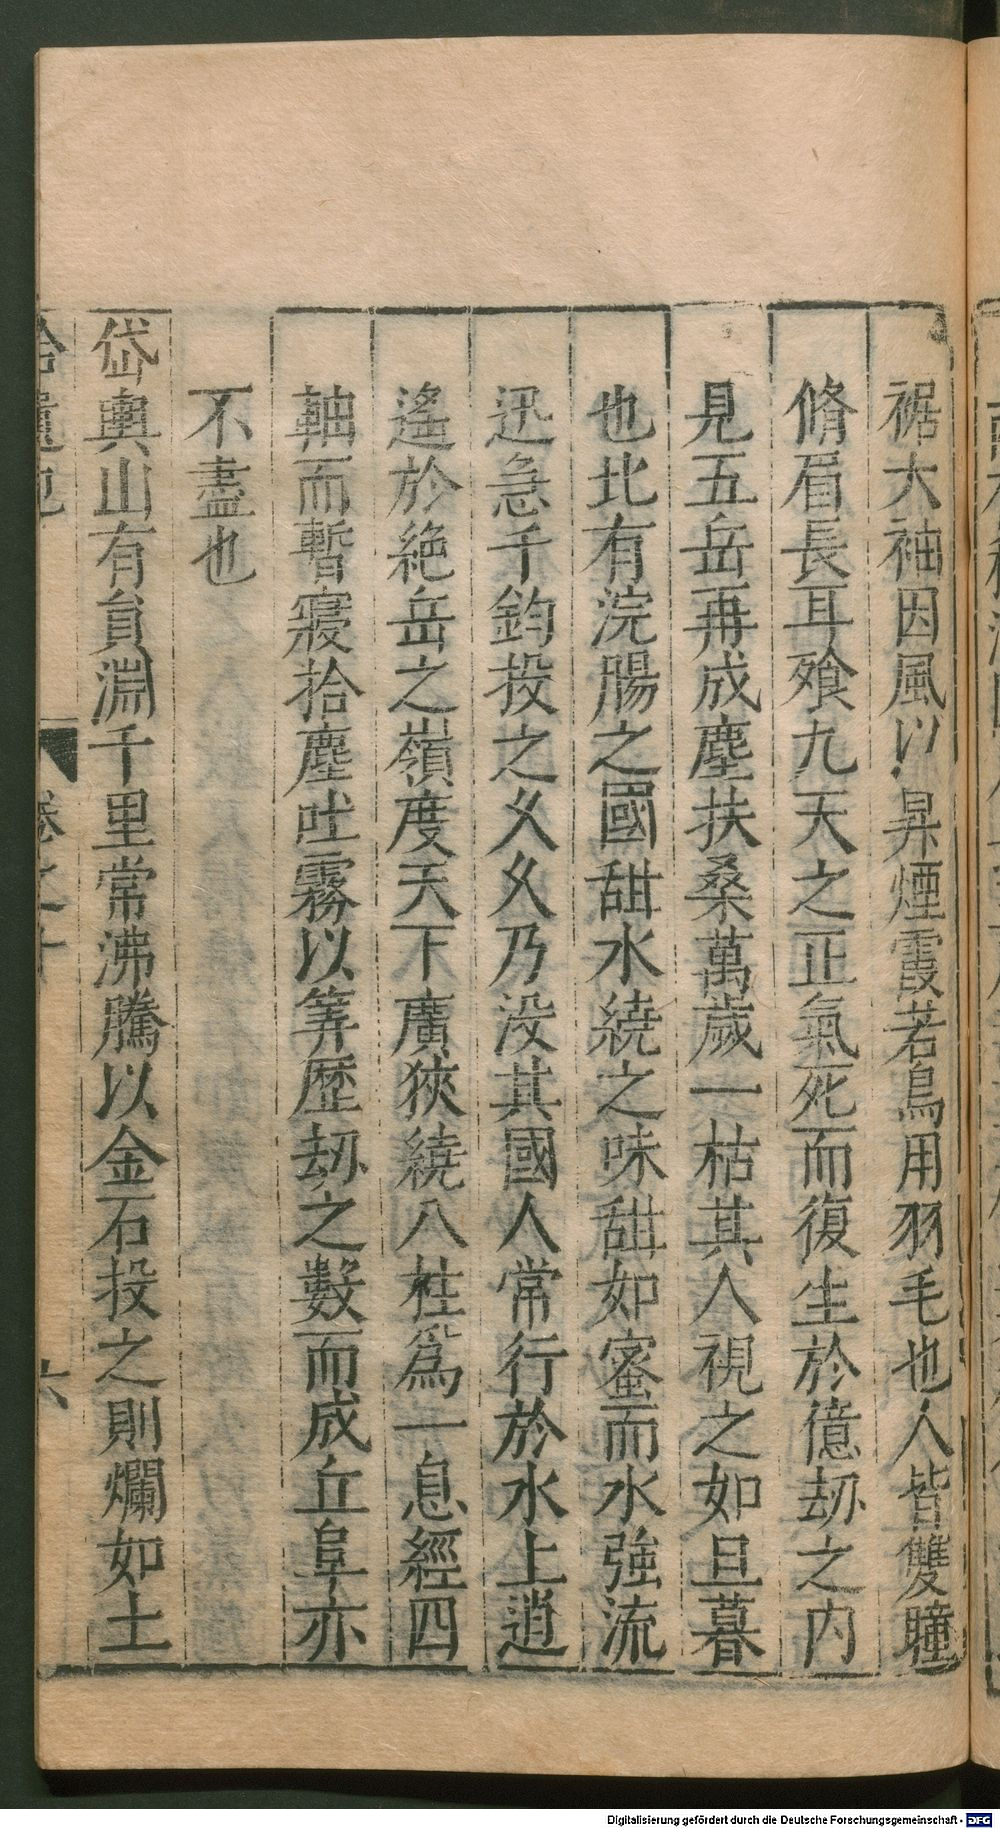 裾大袖因風以昇煙霞若鳥用羽毛也人皆雙瞳
脩眉長耳飱九天之正氣死而復生於億劫之内
見五岳再成塵扶桑萬歲一枯其人視之如旦暮
也比有浣腸之國甜水繞之味甜如蜜而水強流
迅急千鈞投之久久乃没其國人常行於水上逍
遙於絶岳之嶺度天下廣狹繞八柱爲一息經四
軸而暫寢拾塵吐霧以筭歴劫之數而成丘阜亦
不盡也
岱輿山有員淵千里常沸騰以金石投之則爛如土
拾遺記
卷之十
六
Digitalisierung gefördert durch die Deutsche Forschungsgemeinschaft - DFG